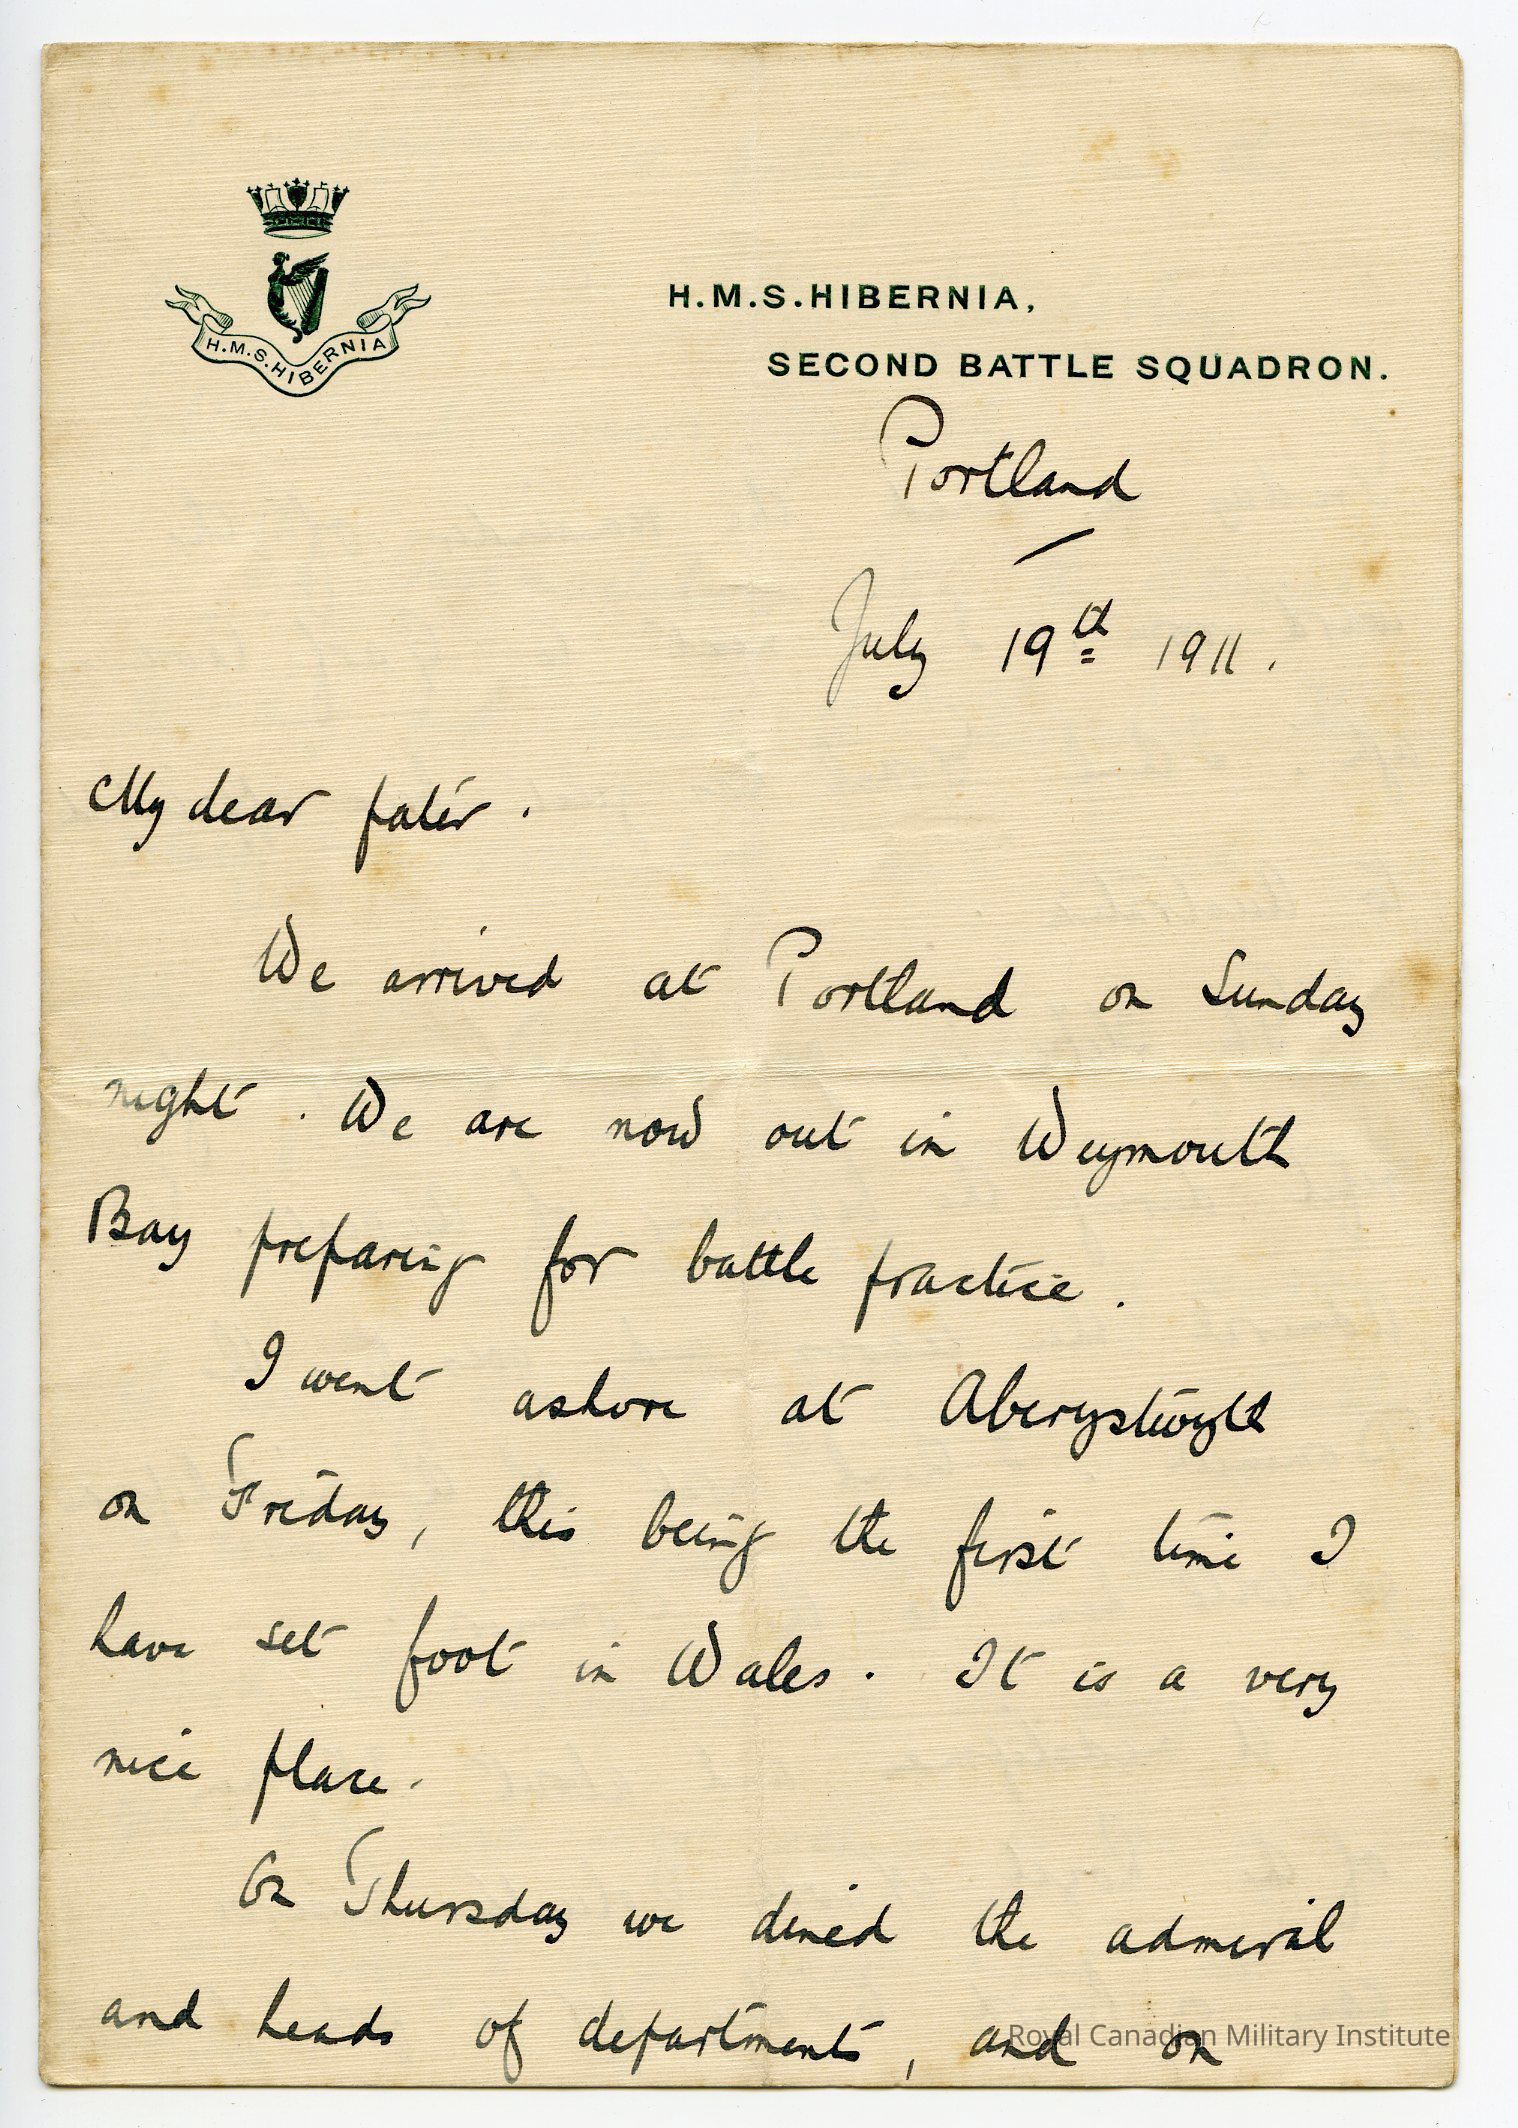 H.M.S. HIBERNIA
H.M.S. HIBERNIA,
SECOND BATTLE SQUADRON.
Portland
July 19th 1911.
My dear pater.
We arrived at Portland on Sunday
night. We are now out in Weymouth
Bay preparing for battle practice.
I went ashore at Aberystwyth
on Friday, this being the first time I
have set foot in Wales. It is a very
nice place.
On Thursday we dined the admiral
and heads of departments, and on
Royal Canadian Military Institute